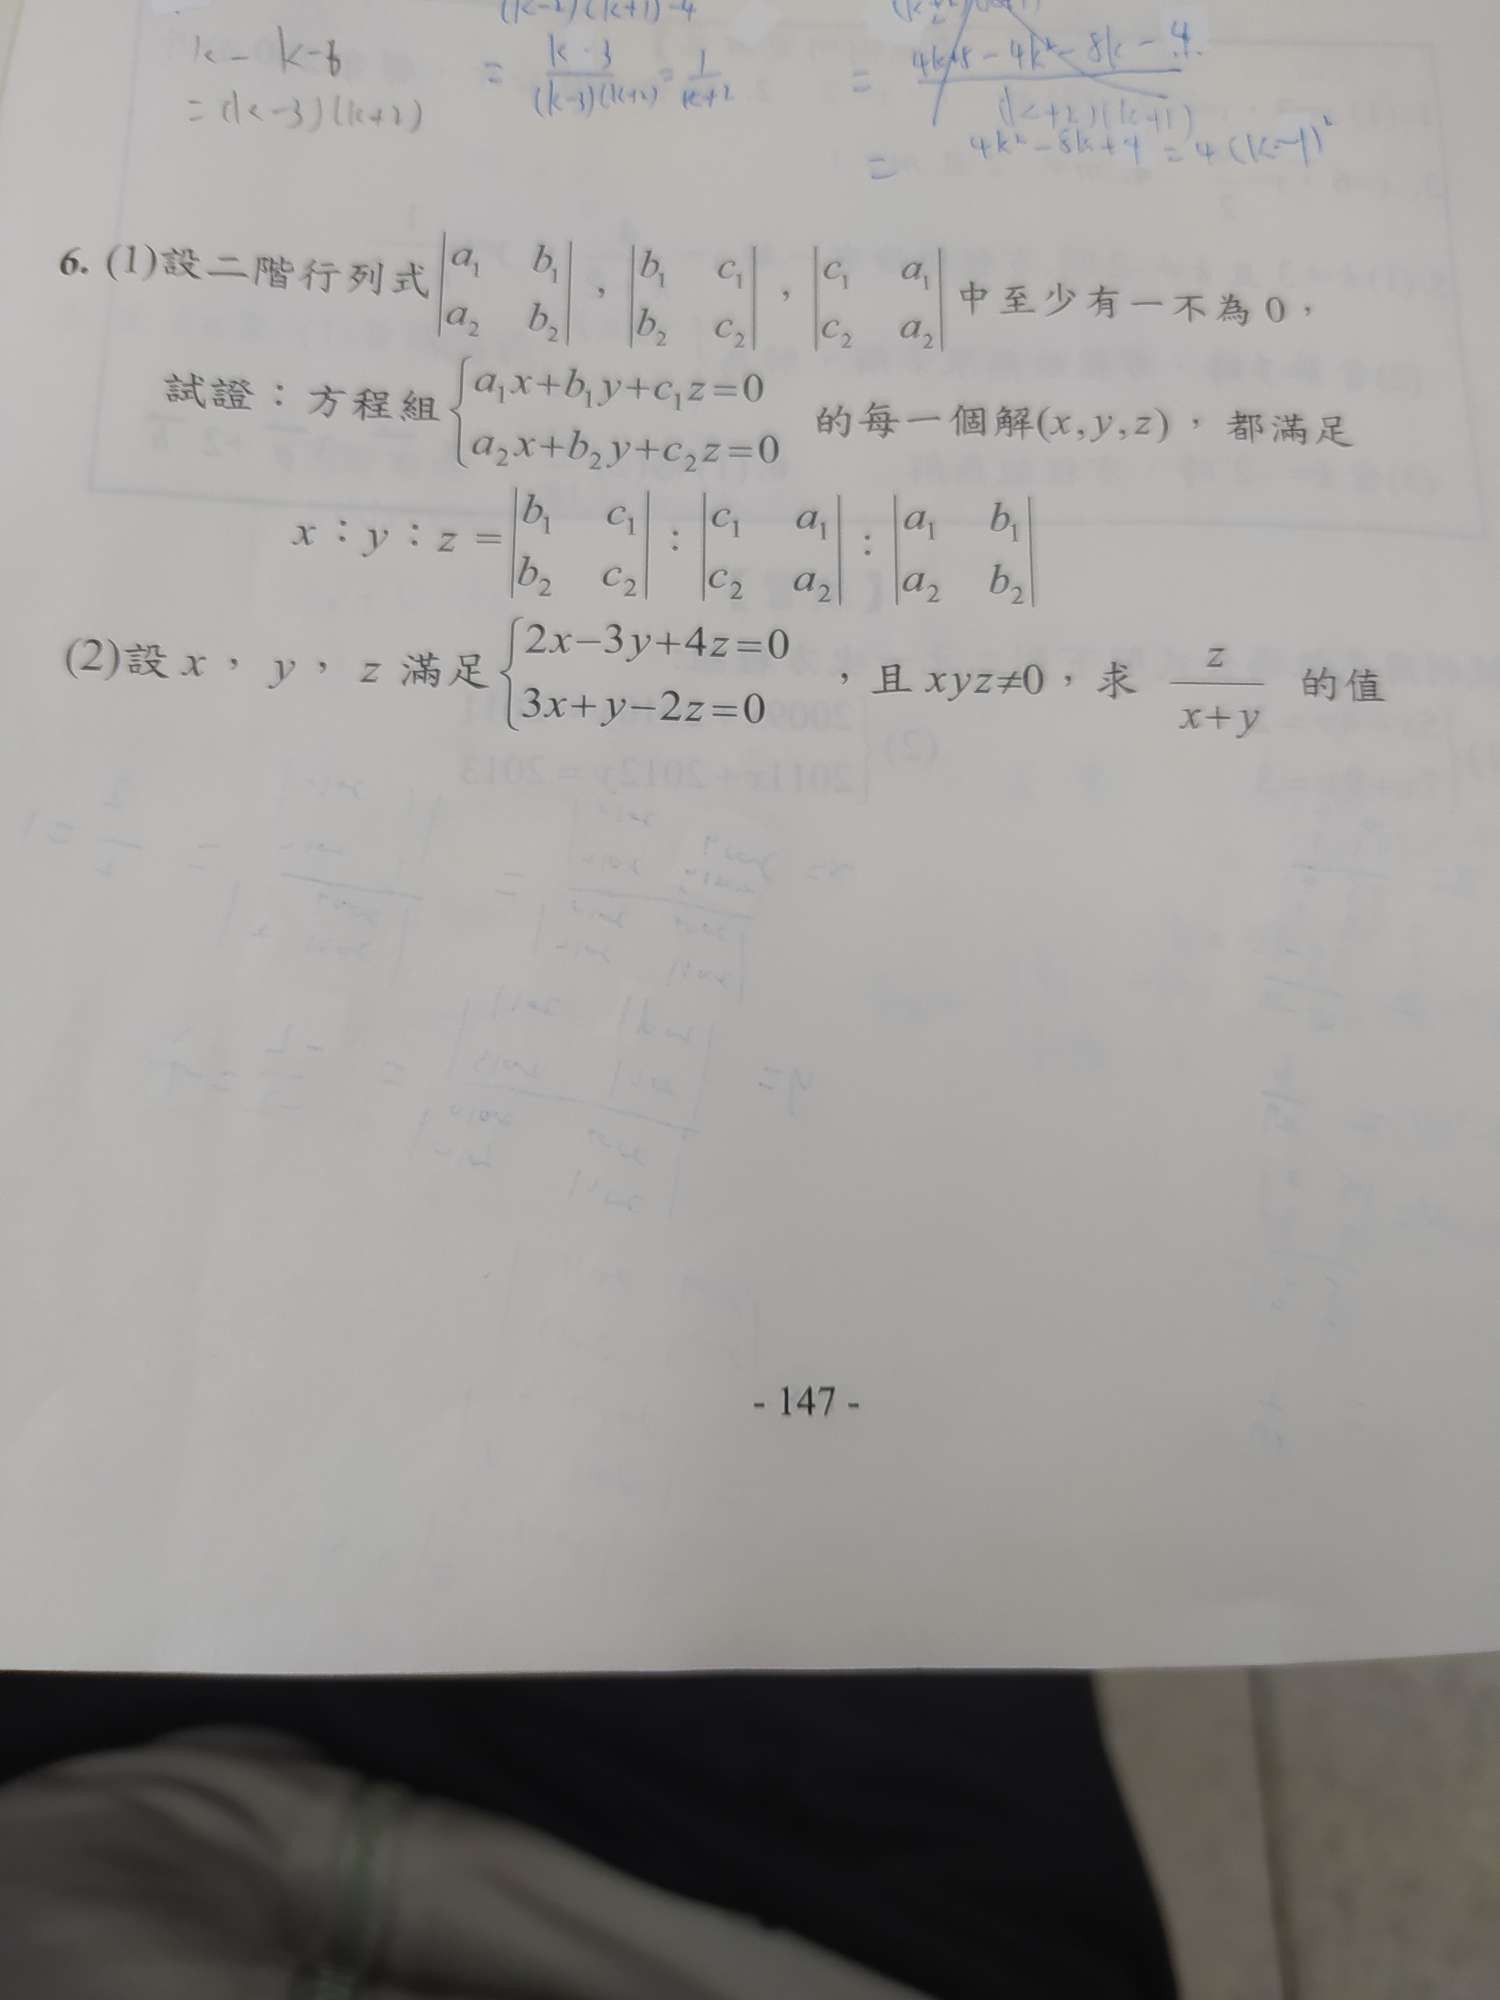 k - k-6
= (k-3)(k+2)
(k-2)(k+1)-4
= \frac{k-3}{(k-3)(k+2)} = \frac{1}{k+2}
= \frac{4k+8-4k²-8k-4}{(k+2)(k+1)}
= 4k²-8k+4 = 4(k-1)²
6. (1)設二階行列式 \begin{vmatrix} a₁ & b₁ \\ a₂ & b₂ \end{vmatrix}, \begin{vmatrix} b₁ & c₁ \\ b₂ & c₂ \end{vmatrix}, \begin{vmatrix} c₁ & a₁ \\ c₂ & a₂ \end{vmatrix} 中至少有一不為0,
試證：方程組 \begin{cases} a₁x+b₁y+c₁z=0 \\ a₂x+b₂y+c₂z=0 \end{cases} 的每一個解(x,y,z)，都滿足
x：y：z = \begin{vmatrix} b₁ & c₁ \\ b₂ & c₂ \end{vmatrix} : \begin{vmatrix} c₁ & a₁ \\ c₂ & a₂ \end{vmatrix} : \begin{vmatrix} a₁ & b₁ \\ a₂ & b₂ \end{vmatrix}
(2)設 x，y，z 滿足 \begin{cases} 2x-3y+4z=0 \\ 3x+y-2z=0 \end{cases}，且 xyz≠0，求 \frac{z}{x+y} 的值
- 147 -